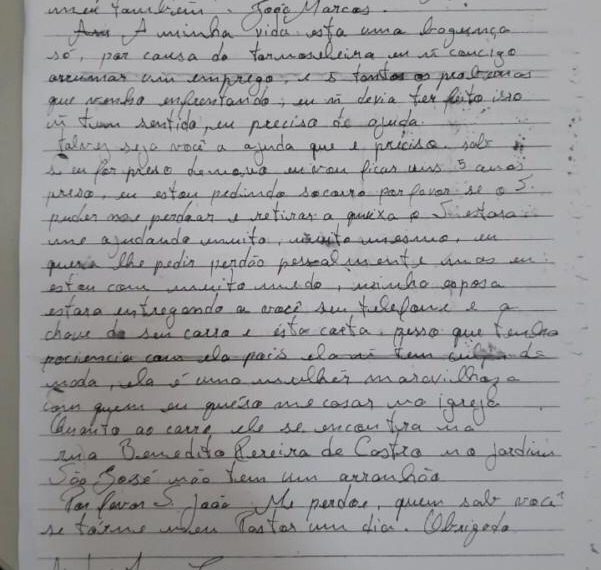 meu também. João Marcos.
A minha vida esta uma bagunça
só, por causa da tornoseleira eu ñ concigo
arrumar um emprego, e s tantos os problemas
que venho enfrentando, eu ñ devia ter feito isso
ñ tem sentido, eu preciso de ajuda.
Talvez seja você a ajuda que e preciso. sab
s eu for preso, de novo eu vou ficar uns 5 anos
preso, eu estou pedindo socorro por favor se o S.
puder me perdoar e retirar a queixa o S. estara
me ajudando muito, muito mesmo, eu
queria lhe pedir perdão pessoalmente mas eu
estou com muito medo, minha esposa
estara entregando a você seu telefone e a
chave do seu carro e esta carta. pesso que tenha
pociencia com ela pois ela ñ tem culpa de
nada, ela é uma mulher maravilhoza
com quem eu quero me casar na igreja
Quanto ao carro ele se encontra na
rua Benedito Pereira de Castro no jardim
São José não tem um arranhão
Por favor S. João Me perdoe, quem sab você
se torne meu Pastor um dia. Obrigado